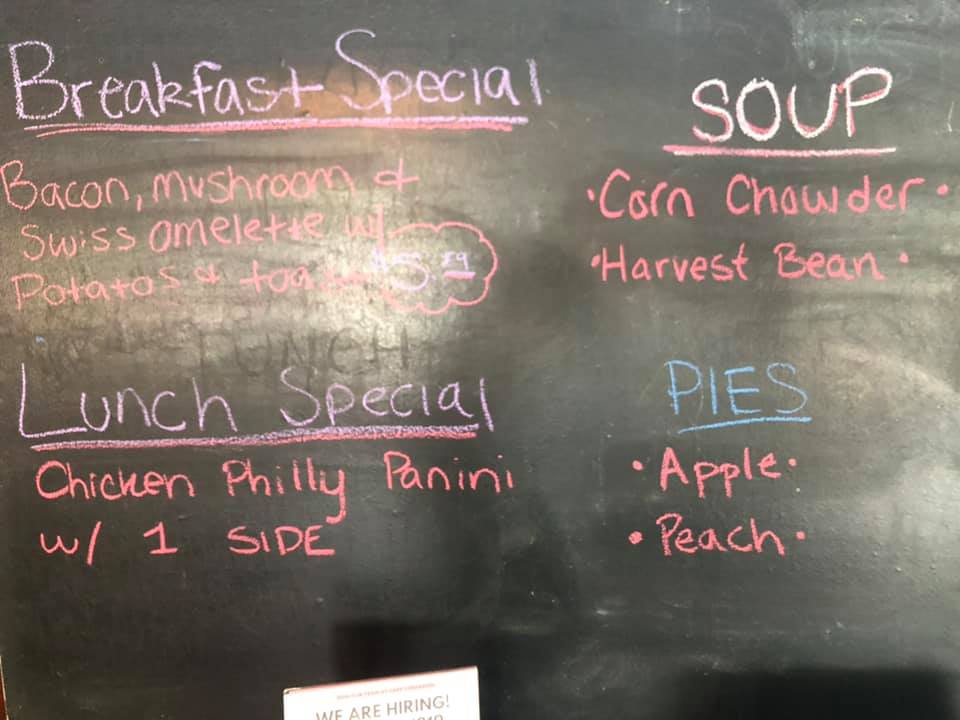 Breakfast Special
Bacon, mushroom &
Swiss omelette w/
Potatos & toast
Lunch Special
Chicken Philly Panini
w/ 1 SIDE
SOUP
•Corn Chowder•
•Harvest Bean•
PIES
•Apple•
•Peach•
WE ARE HIRING!